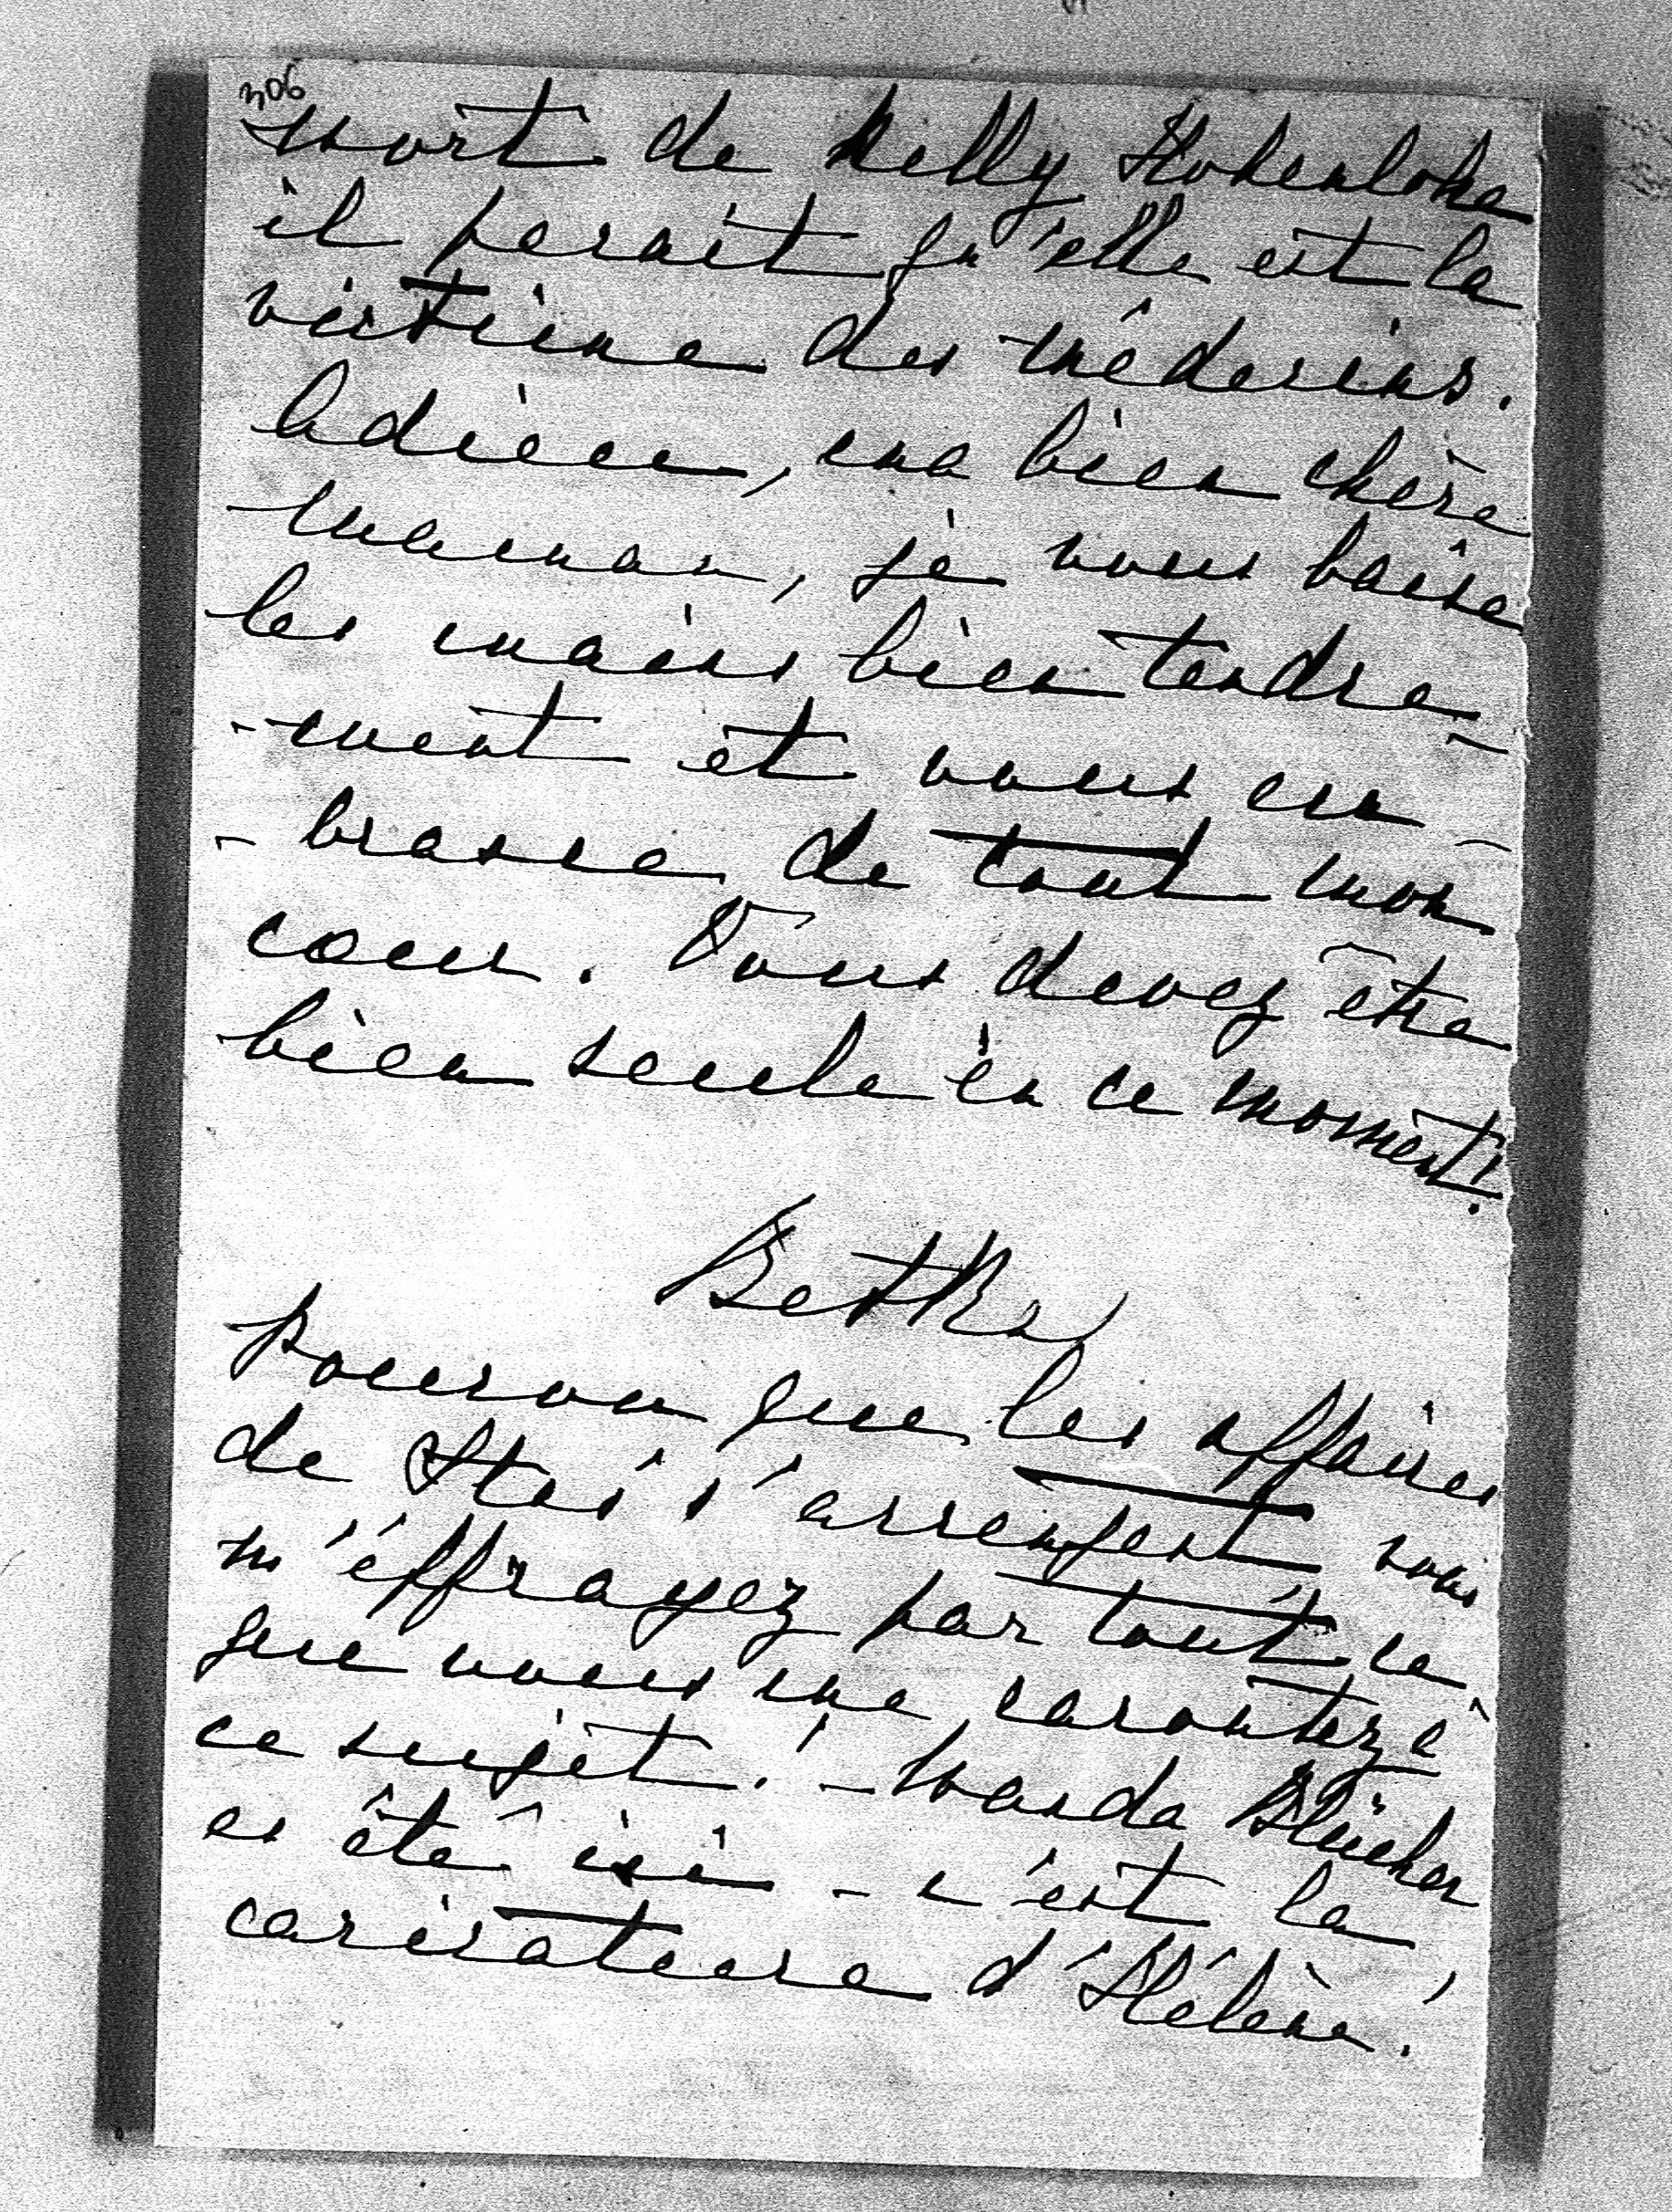 306
mort de Nelly Hohenlohe
il parait qu'elle est la
victime des médecins.
Adieu, ma bien chère
maman, je vous baise
les mains bien tendre-
-ment et vous em-
-brasse de tout mon
coeur. Vous devez être
bien seule en ce moment!
Betka
Pourvu que les affaires
de Stas s'arrangent vous
m'éffrayez par tout ce
que vous me racontez à
ce sujet! - Wanda Blücher
a été ici - c'est la
caricature d'Hélène!